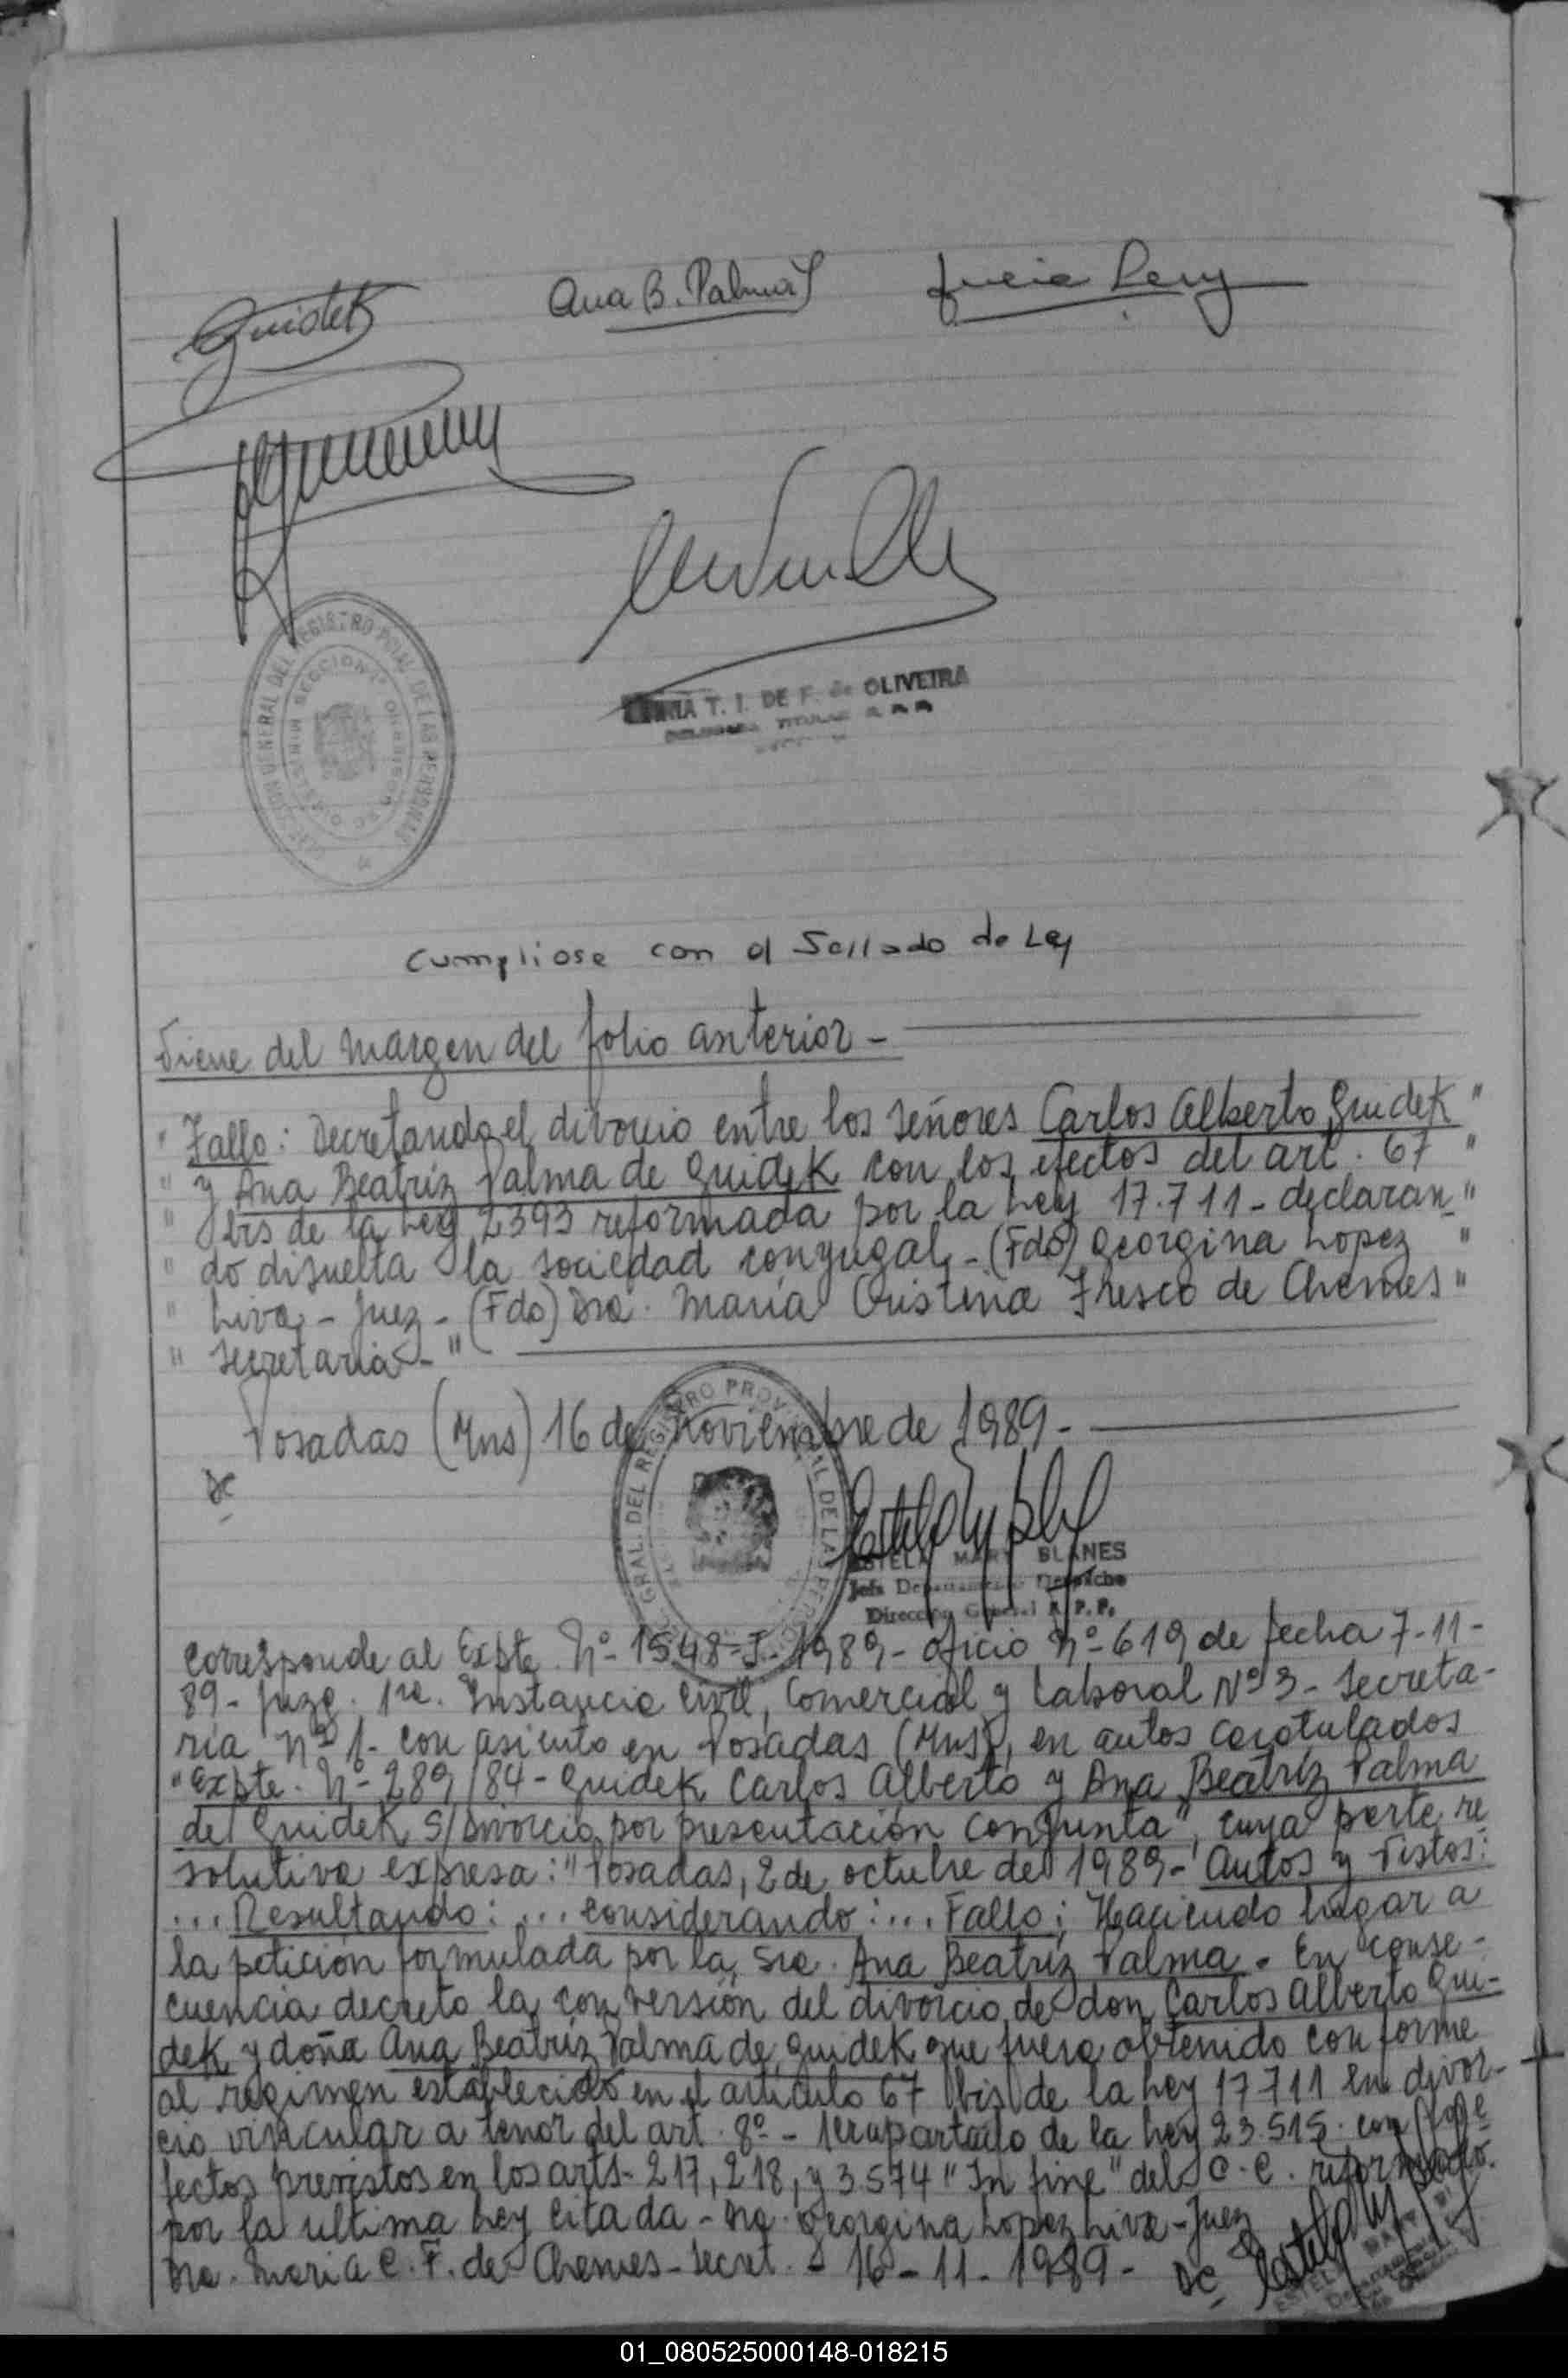 Guidek
Ana B. Palma
DE F. de OLIVEIRA
Cumpliose con el Sellado de Ley
Viene del margen del folio anterior -
" Fallo: Decretando el divorcio entre los señores Carlos Alberto Guidek "
" y Ana Beatríz Palma de Guidek con los efectos del art. 67 "
" bis de la Ley 2393 reformada por la Ley 17.711 - declaran "
" do disuelta la sociedad conyugal - (Fdo) Georgina Lopez "
" Liva - Juez - (Fdo) Dra. María Cristina Fresco de Chemes "
" Secretaria - "
Posadas (Mns) 16 de Noviembre de 1989 -
DC
ESTELA MARY BLANES
Jefa Departamento Despacho
Dirección General R.P.P.
Corresponde al Expte. Nº - 1548-J-1989 - oficio nº - 619 de fecha 7-11-
89 - Juzg. 1ra. Instancia Civil, Comercial y Laboral Nº 3 - Secreta-
ría nº 1 - con asiento en Posadas (Mns), en autos carotulados
"Expte. Nº - 289/84 - Guidek Carlos Alberto y Ana Beatríz Palma
de Guidek S/ Divorcio por presentación conjunta", cuya parte re
solutiva expresa: "Posadas, 2 de octubre de 1989 - Autos y Vistos:
... Resultando: ... considerando: ... Fallo; Haciendo lugar a
la petición formulada por la Sra. Ana Beatríz Palma. En conse-
cuencia decreto la conversión del divorcio de don Carlos Alberto Gui-
dek y doña Ana Beatríz Palma de Guidek que fuera obtenido conforme
al regimen establecido en el artículo 67 bis de la Ley 17711 en divor-
cio vincular a tenor del art. 8º - 1er apartado de la Ley 23.515. con
fectos previstos en los arts - 217, 218, y 3.574 "In fine" del C.C. reformado
por la ultima Ley citada - Dra. Georgina Lopez Liva - Juez
Dra. Maria C. F. de Chemes - Secret. - 16 - 11 - 1989 - DC
01_080525000148-018215